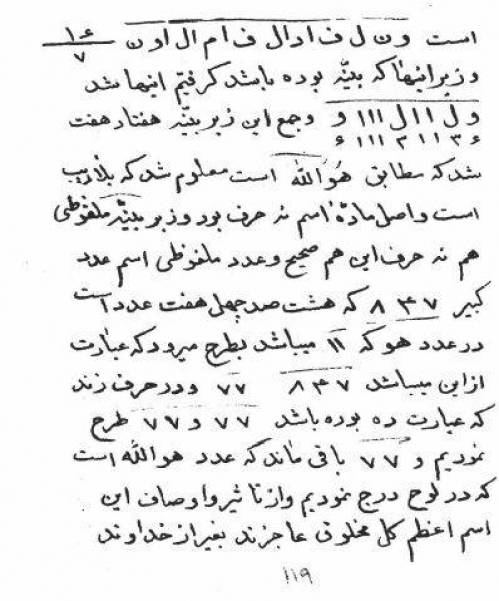 است ون ل ف ا د ا ل ف ا م ا ل ا و ن ۱۶
۷
و زبر اینها که بینّه بوده باشد کرفتیم اینها شد
و ل ا ا ل ا ا ا و وجمع این زبر بینّه هفتاد هفت
۶ ۳ ۱ ۱ ۳ ۱ ۱ ۱ ۶
شد که مطابق هُوَ اللّه است معلوم شد که بلاریب
است واصل مادّهٔ اسم نه حرف بود وزبر بینّه ملفوظی
هم نه حرف این هم صحیح و عدد ملفوظی اسم عدد
کبیر ۸۴۷ که هشت صد چهل هفت عدد است
در عدد هو که ۱۱ میباشد بطرح میرود که عبارت
از این میباشد ۸۴۷ ۷۷ ودر حرف زند
که عبارت ده بوده باشد ۷۷ و ۷۷ طرح
نمودیم و ۷۷ باقی ماند که عدد هو اللّه است
که در لوح درج نمودیم واز تاثیر و اوصاف این
اسم اعظم کل مخلوق عاجزند بغیر از خداوند
۱۱۹